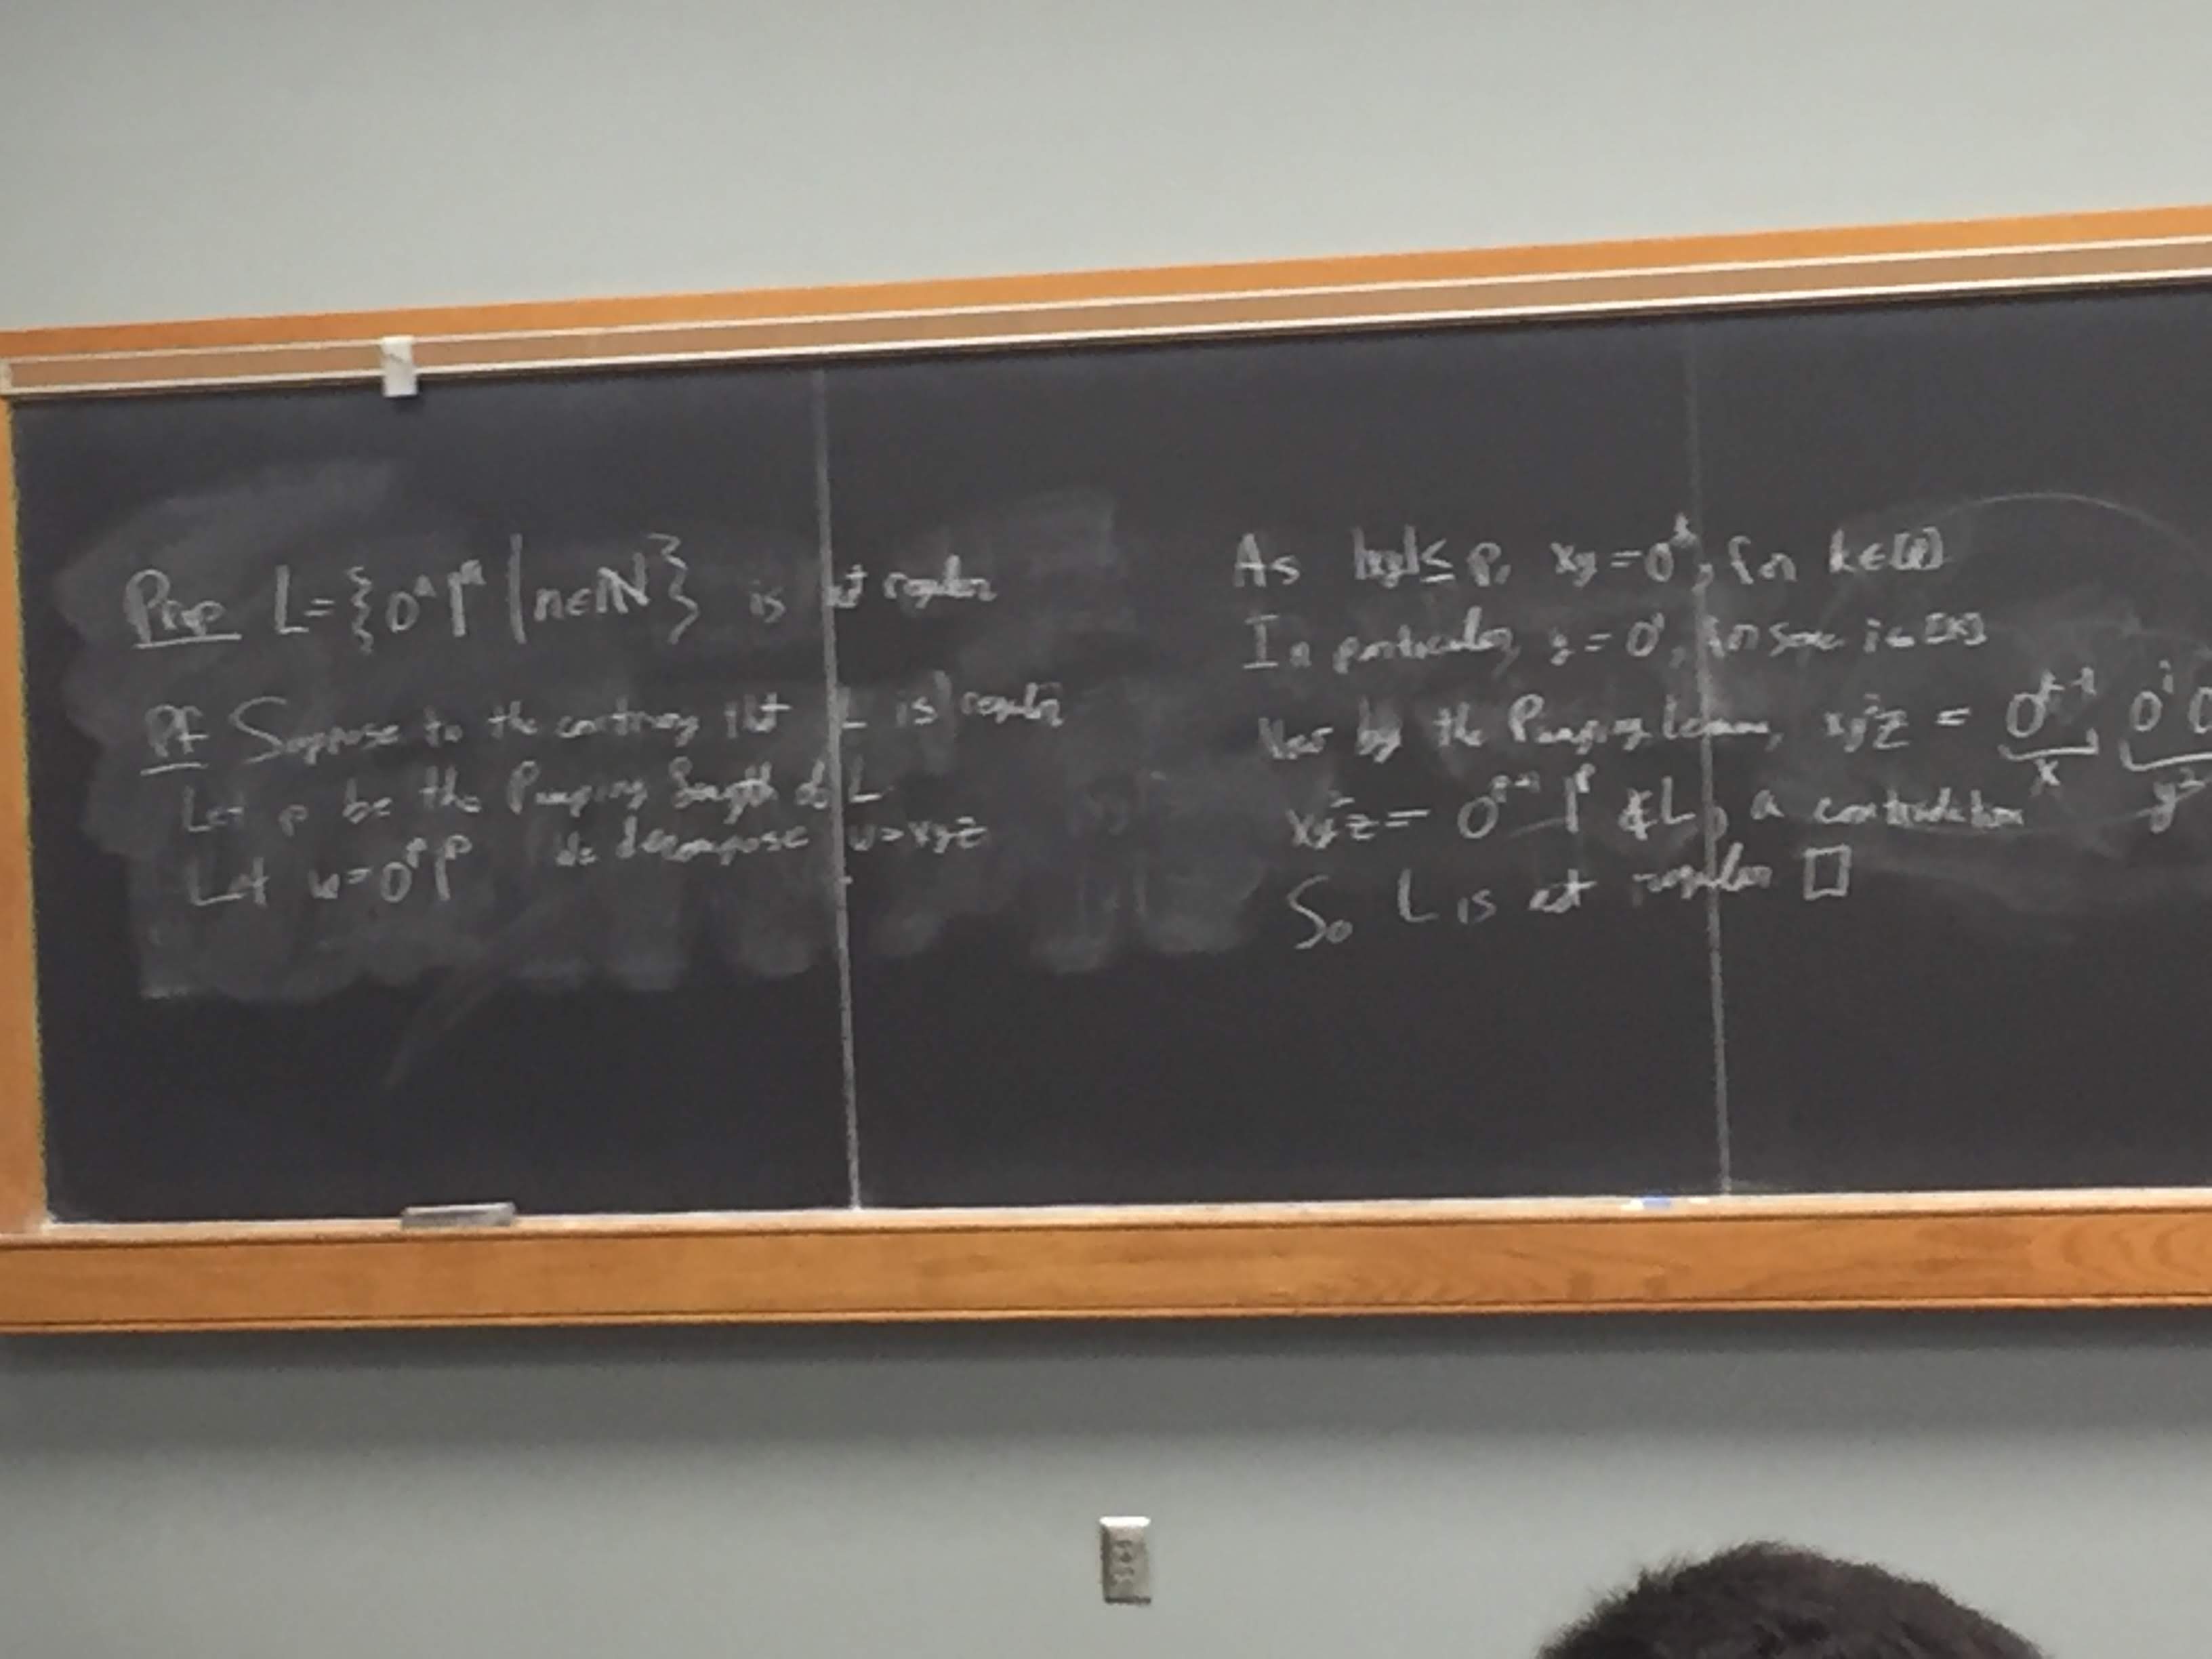 Prop L={0ⁿ1ⁿ | n∈ℕ} is not regular
Pf Suppose to the contrary that L is regular
Let p be the Pumping length of L
Let w=0ᵖ1ᵖ We decompose w=xyz
As |xy|≤p, xy=0ᵏ, for k∈[p]
In particular, y=0ⁱ, for some i∈[k]
by the Pumping Lemma, xy²z = 0ᵏ⁻ⁱ 0ⁱ 0
x y²
xy²z = 0ᵖ⁺ⁱ 1ᵖ ∉L, a contradiction
So L is not regular □